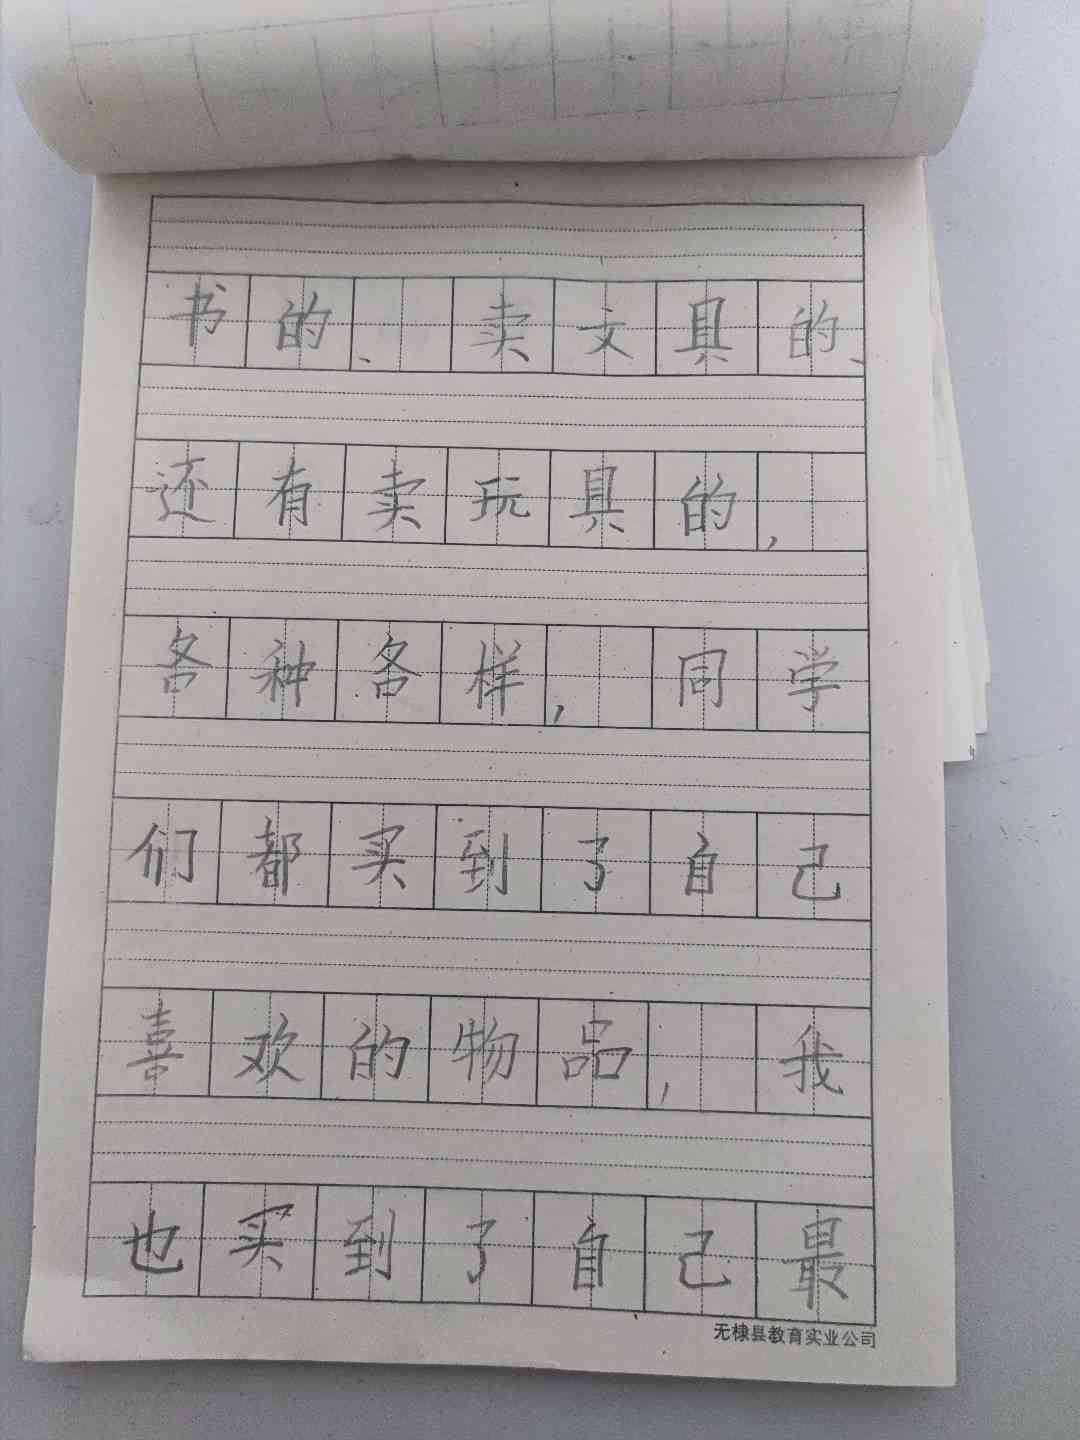 书的、卖文具的、
还有卖玩具的,
各种各样,同学
们都买到了自己
喜欢的物品,我
也买到了自己最
无棣县教育实业公司